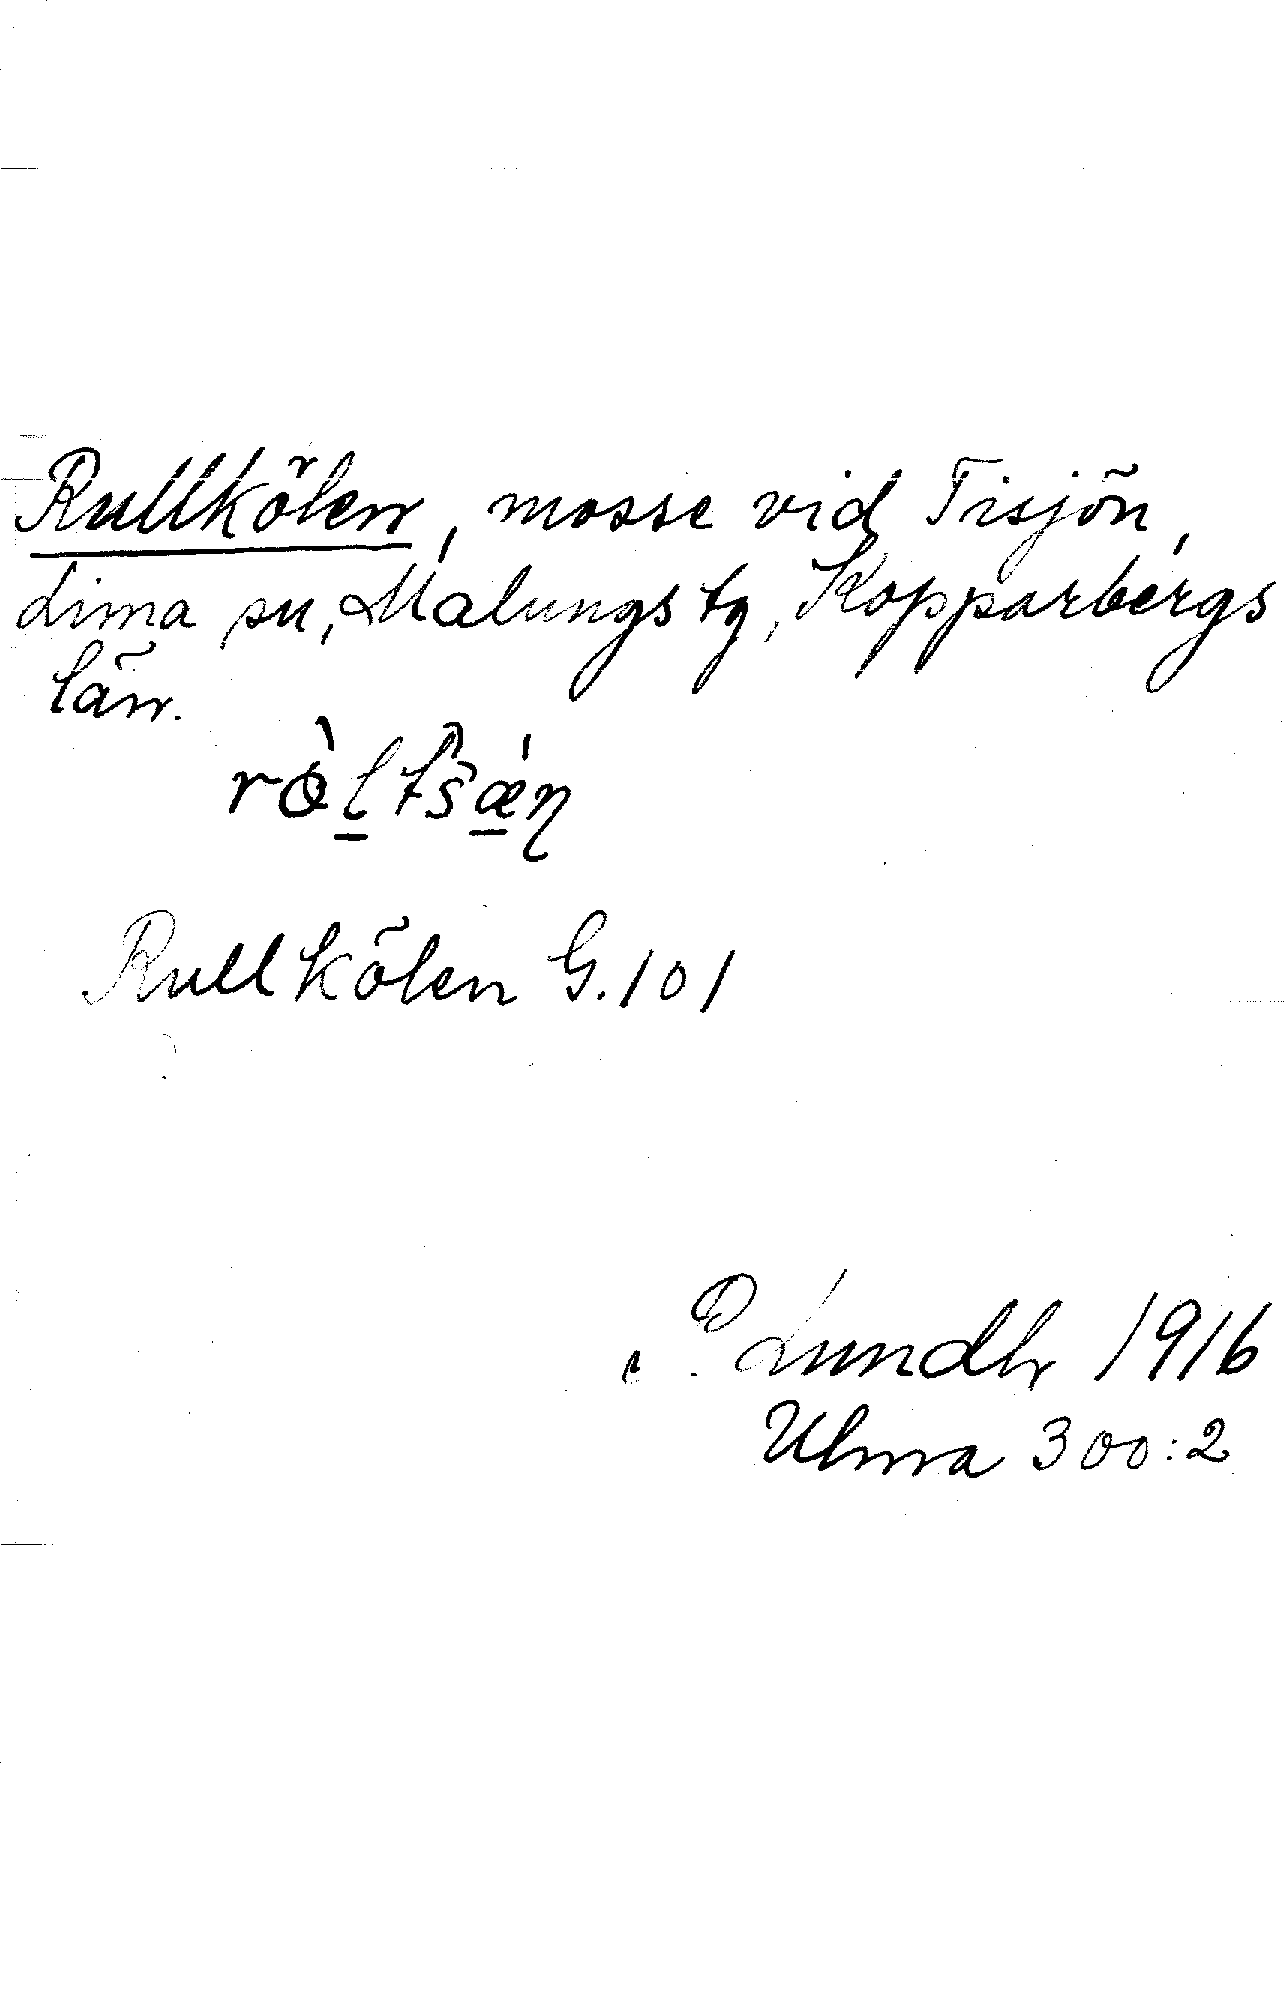 Rullkölen, mosse vid Tisjön,
Lima sn, Malungs tg, Kopparbergs
län.
Rullkölen G. 101
D. Lundh 1916
Ulma 300:2